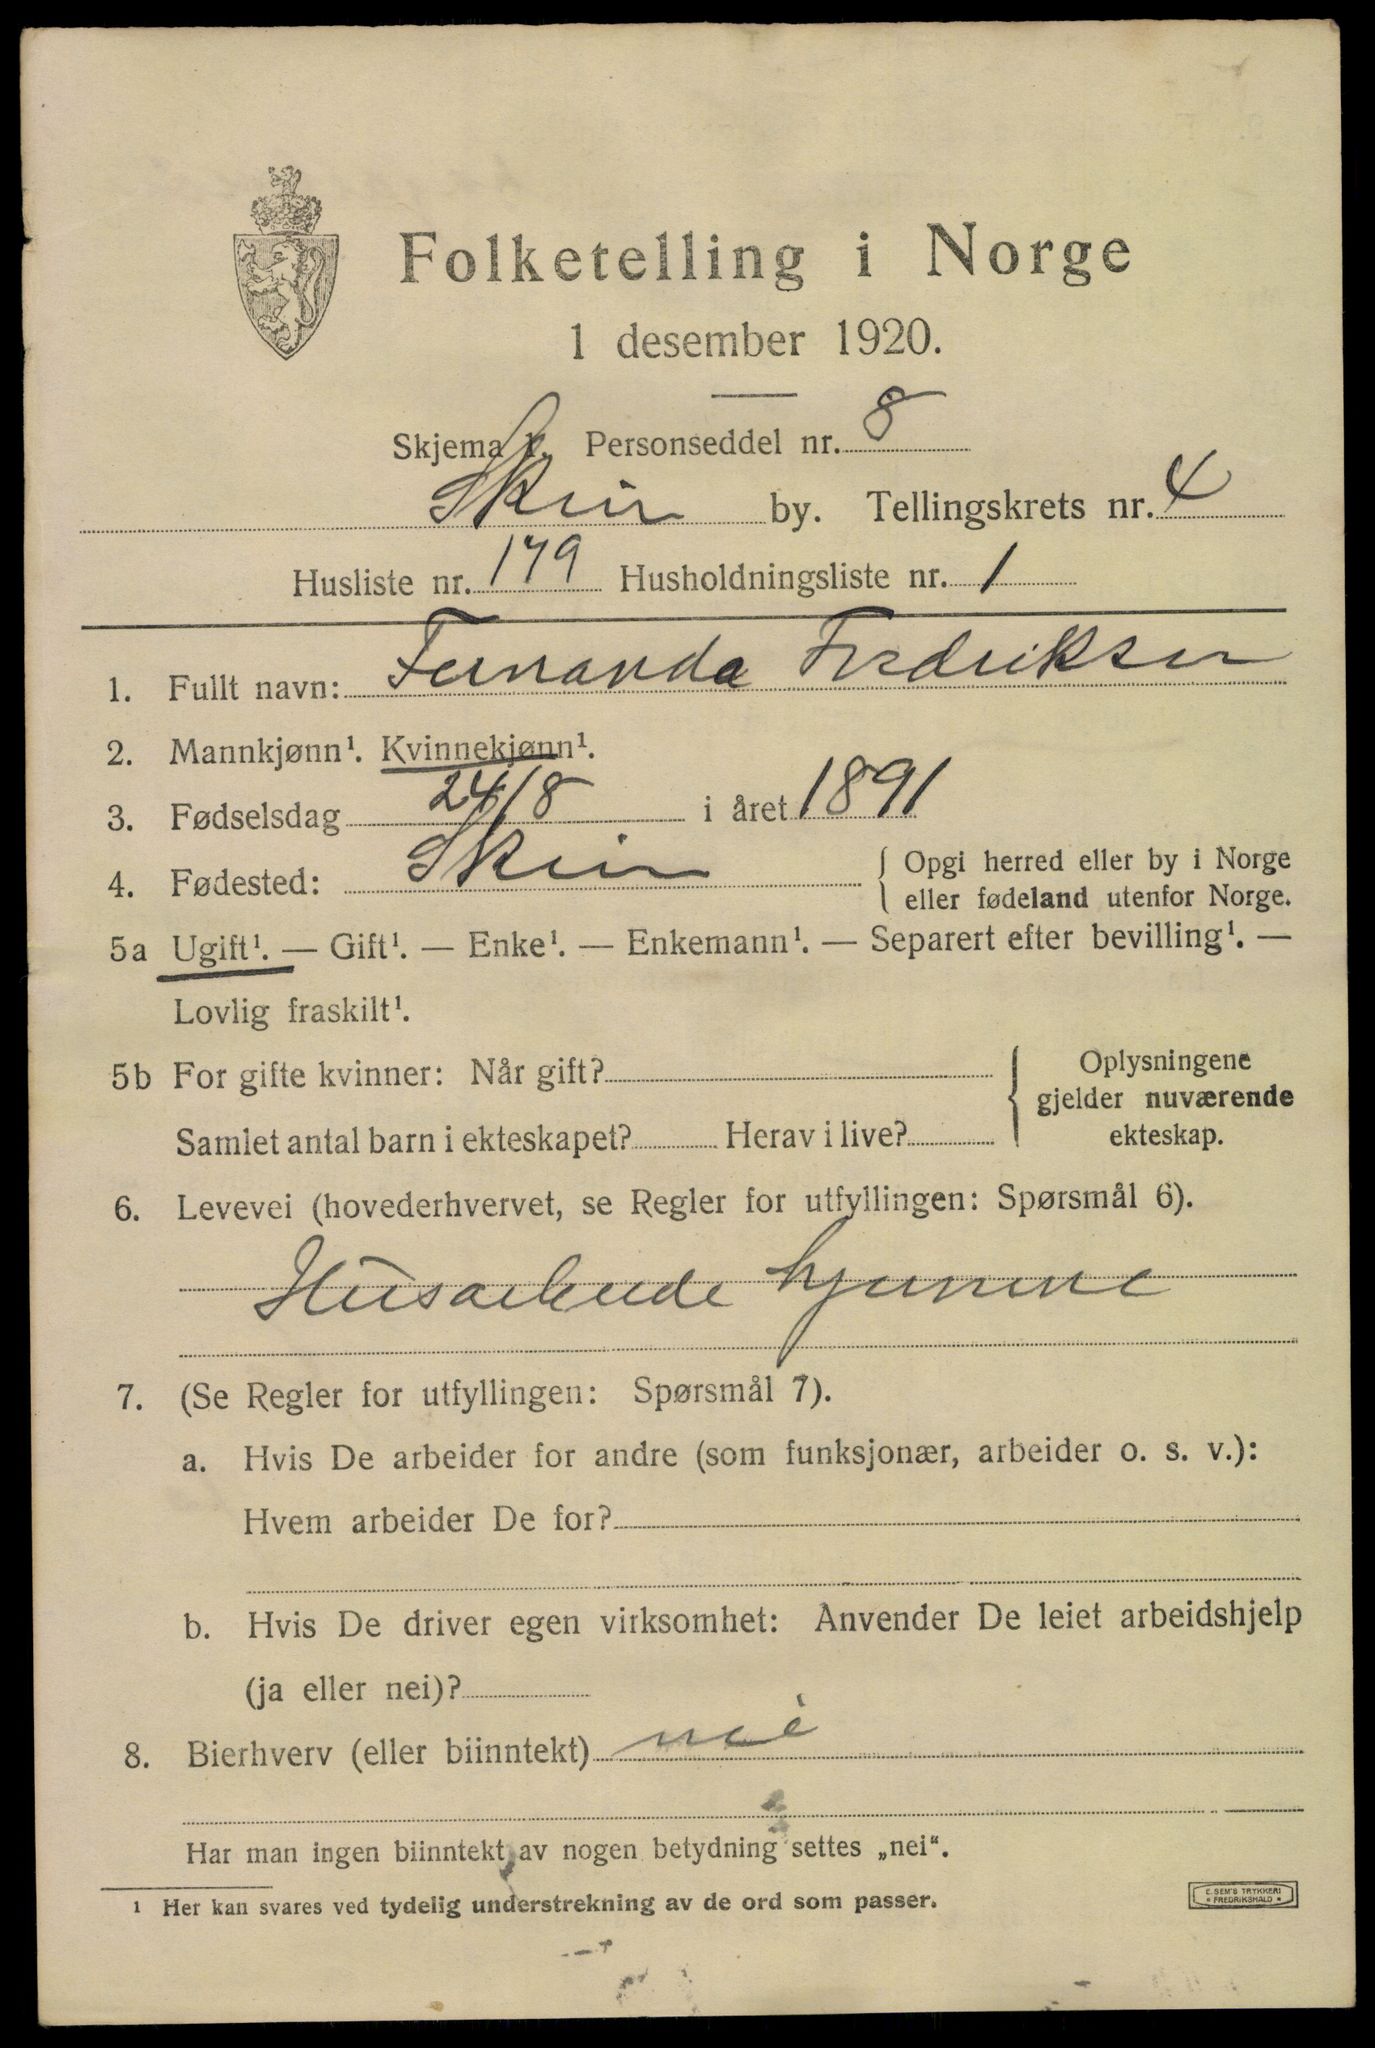 Folketelling i Norge
1 desember 1920.
Skjema 1. Personseddel nr. 8
Skien by. Tellingskrets nr. 4
Husliste nr. 179 Husholdningsliste nr. 1
1. Fullt navn: Fernanda Fredriksen
2. Mannkjønn¹. Kvinnekjønn¹.
3. Fødselsdag 24/8 i året 1891
4. Fødested: Skien { Opgi herred eller by i Norge
eller fødeland utenfor Norge.
5a Ugift¹. — Gift¹. — Enke¹. — Enkemann¹. — Separert efter bevilling¹. —
Lovlig fraskilt¹.
5b For gifte kvinner: Når gift? { Oplysningene
gjelder nuværende
Samlet antal barn i ekteskapet? Herav i live? ekteskap.
6. Levevei (hovederhvervet, se Regler for utfyllingen: Spørsmål 6).
Husarbeide hjemme
7. (Se Regler for utfyllingen: Spørsmål 7).
a. Hvis De arbeider for andre (som funksjonær, arbeider o. s. v.):
Hvem arbeider De for?
b. Hvis De driver egen virksomhet: Anvender De leiet arbeidshjelp
(ja eller nei)?
8. Bierhverv (eller biinntekt) nei
Har man ingen biinntekt av nogen betydning settes „nei“.
¹ Her kan svares ved tydelig understrekning av de ord som passer.
E. SEM'S TRYKKERI
* FREDRIKSHALD *